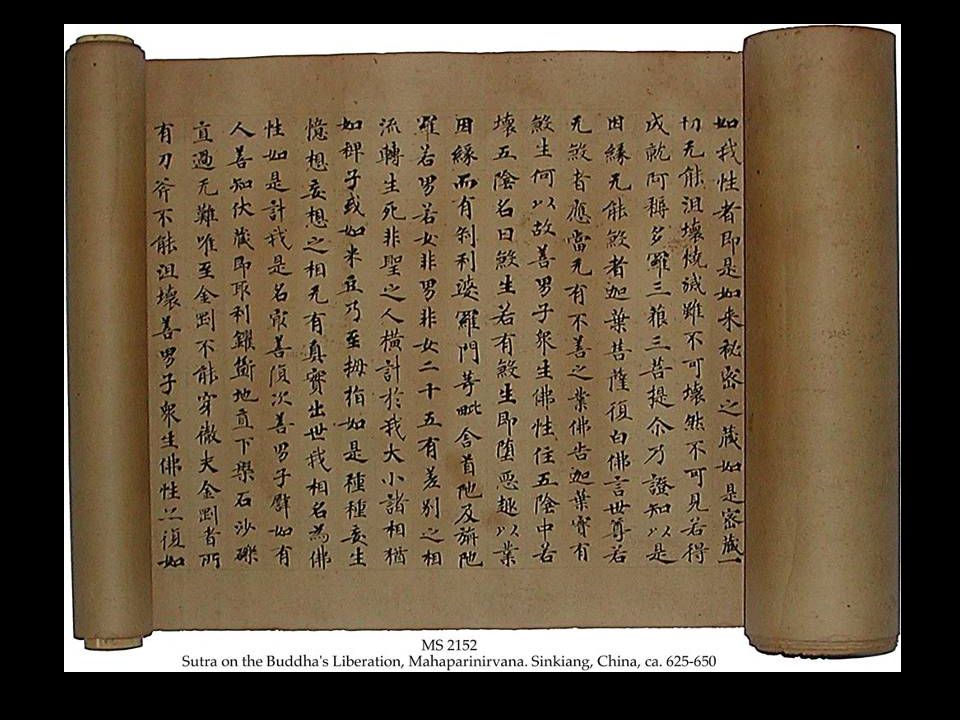 如我性者即是如来秘密之藏如是密藏一
切无能沮壞燒滅雖不可壞然不可見若得
成就阿耨多羅三藐三菩提尒乃證知以是
因緣无能煞者迦葉菩薩復白佛言世尊若
无煞者應當无有不善之業佛告迦葉實有
煞生何以故善男子衆生佛性住五陰中若
壞五陰名曰煞生若有煞生即墮惡趣以業
因緣而有剎利婆羅門等毗舍首陁及旃陁
羅若男若女非男非女二十五有差别之相
流轉生死非聖之人横計於我大小諸相猶
如稗子或如米豆乃至拇指如是種種妄生
憶想妄想之相无有真實出世我相名為佛
性如是計我是名冣善復次善男子譬如有
人善知伏藏即取利钁斵地直下槃石沙礫
直過无難唯至金剛不能穿徹夫金剛者所
有刀斧不能沮壞善男子衆生佛性亦復如
MS 2152
Sutra on the Buddha's Liberation, Mahaparinirvana. Sinkiang, China, ca. 625-650